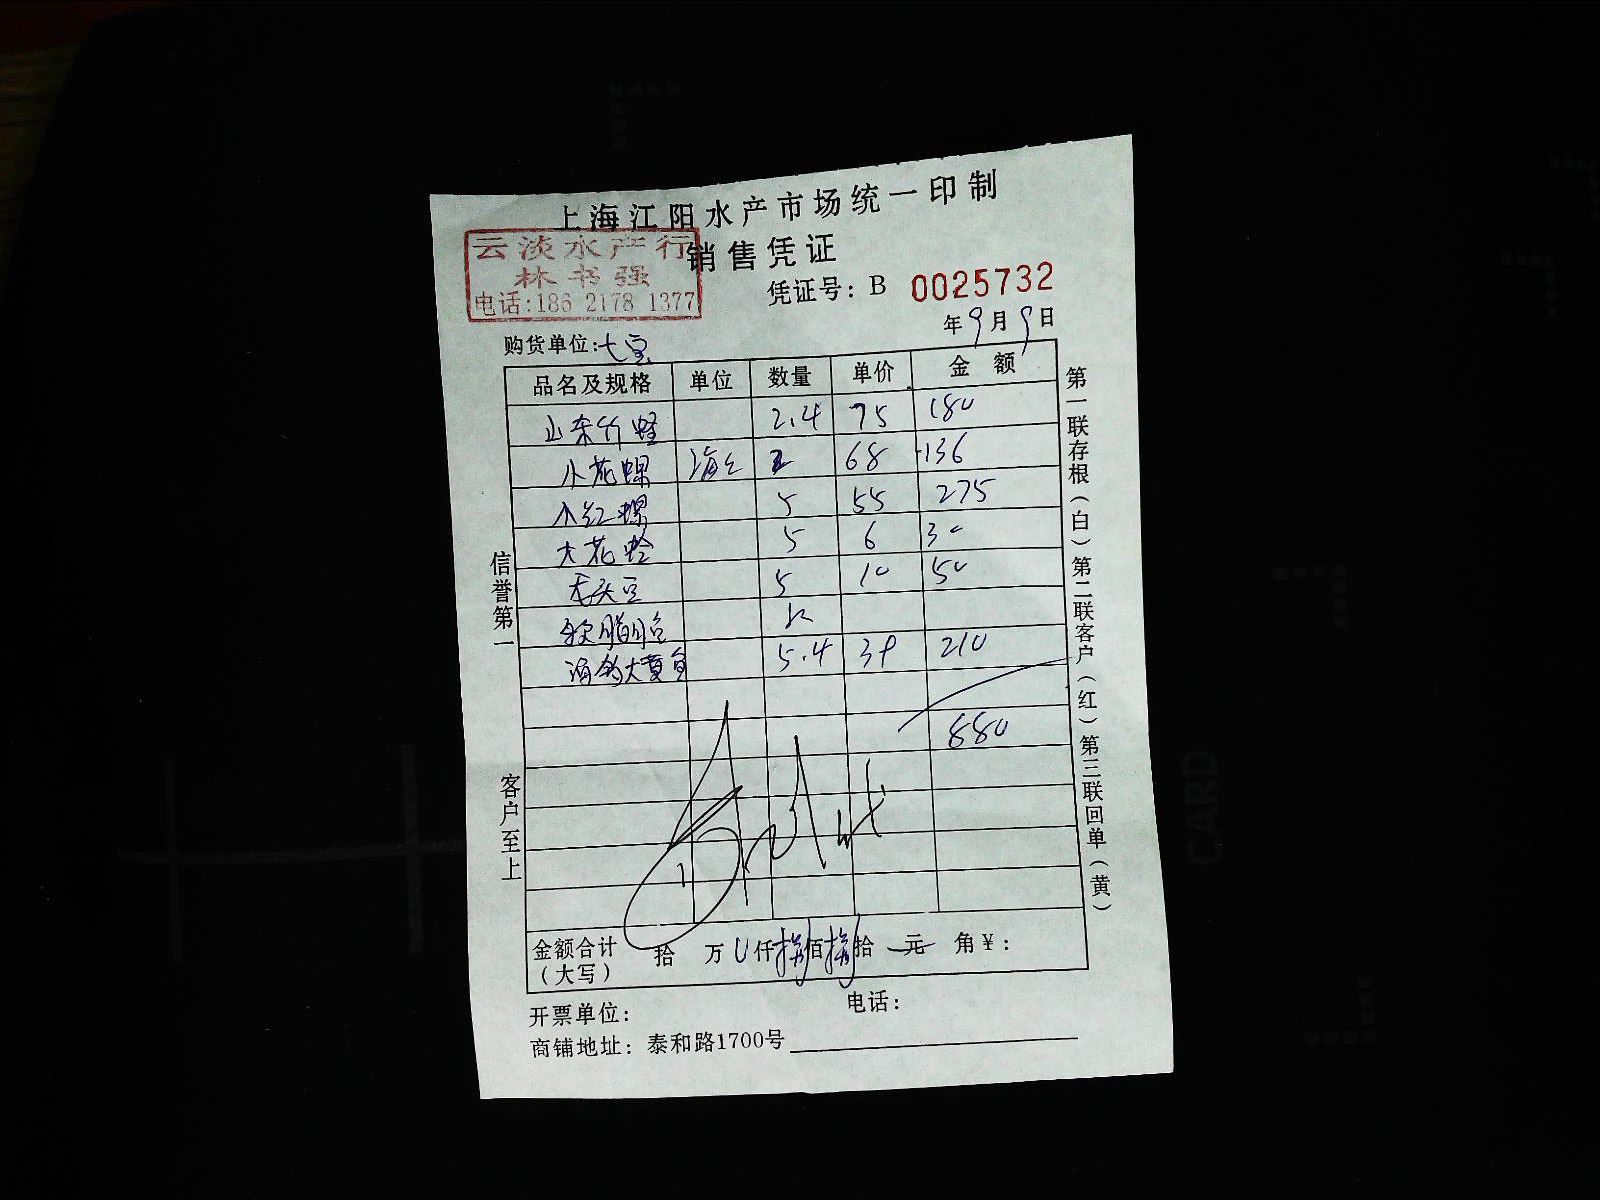 上海江阳水产市场统一印制
云淡水产行
销售凭证
林书强
电话:186 2178 1377
凭证号: B 0025732
年9月9日
购货单位:七宝
品名及规格 单位 数量 单价 金额
山东竹蛏 2.4 75 180
小花螺 2 68 136
小红螺 5 55 275
大花蛤 5 6 30
无头豆 5 10 50
海鲈大黄鱼 5.4 39 210
880
金额合计 拾 万 0 仟 捌 佰 捌 拾 元 角 ¥:
(大写)
开票单位: 电话:
商铺地址: 泰和路1700号
信誉第一
客户至上
第一联存根(白)第二联客户(红)第三联回单(黄)
CARD